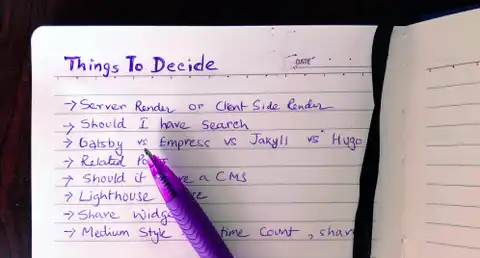 Things To Decide
DATE
→ Server Render or Client Side Render
→ Should I have Search
→ Gatsby vs Empress vs Jakyll vs Hugo
→ Related
→ Should it a CMS
→ Lighthouse
→ Share
→ Medium Style time Count,